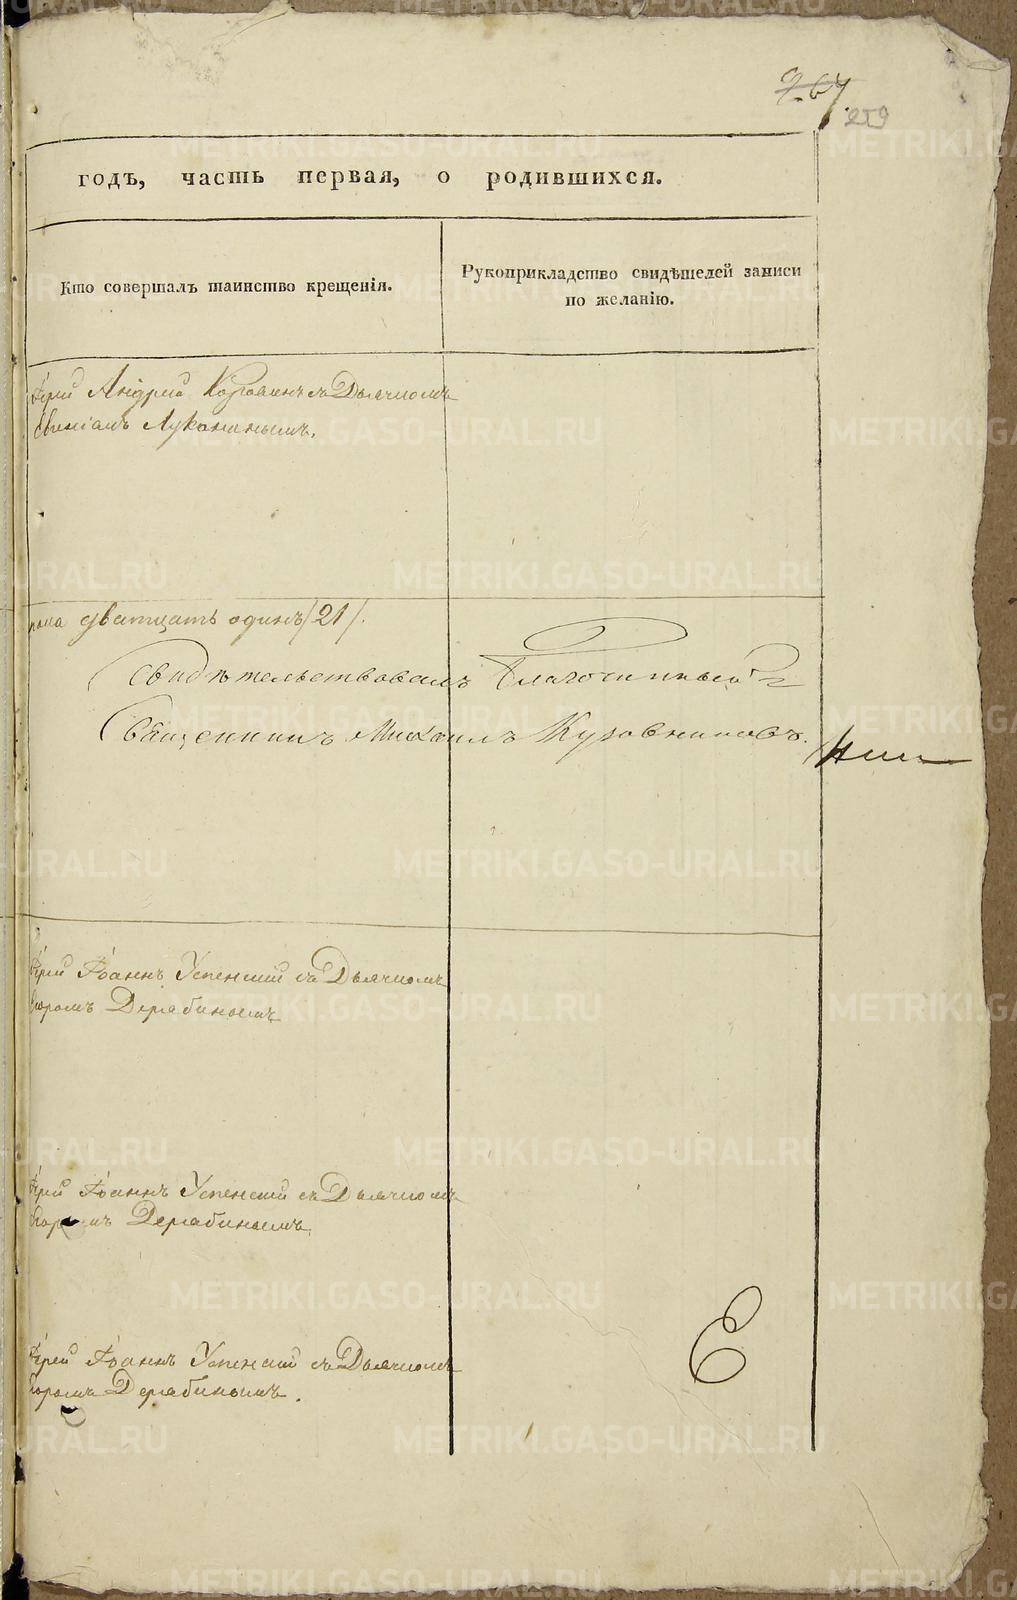 259
годъ, часть первая, о родившихся.
Кто совершалъ таинство крещенія.
Рукоприкладство свидѣтелей записи
по желанію.
Іерей Андрей съ Дьячкомъ
Лукинымъ.
дватцать одинъ /21/.
Свидѣтельствовалъ Благочинный
Священникъ Михаилъ Куровниковъ.
Іерей Іоаннъ Успенскій съ Дьячкомъ
Егоромъ Дерябинымъ
Іерей Іоаннъ Успенскій съ Дьячкомъ
Егоромъ Дерябинымъ
Іерей Іоаннъ Успенскій съ Дьячкомъ
Егоромъ Дерябинымъ.
METRIKI.GASO-URAL.RU